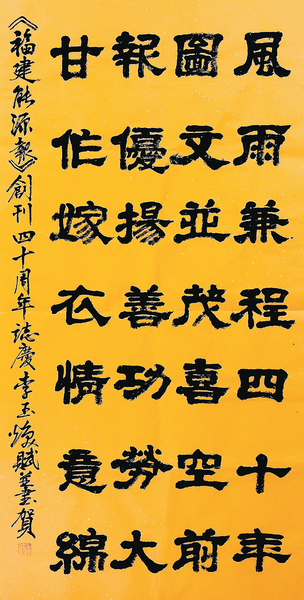 風雨兼程四十年
圖文並茂喜空前
報優揚善功勞大
甘作嫁衣情意綿
《福建能源報》創刊四十周年誌慶李玉煥賦並書賀